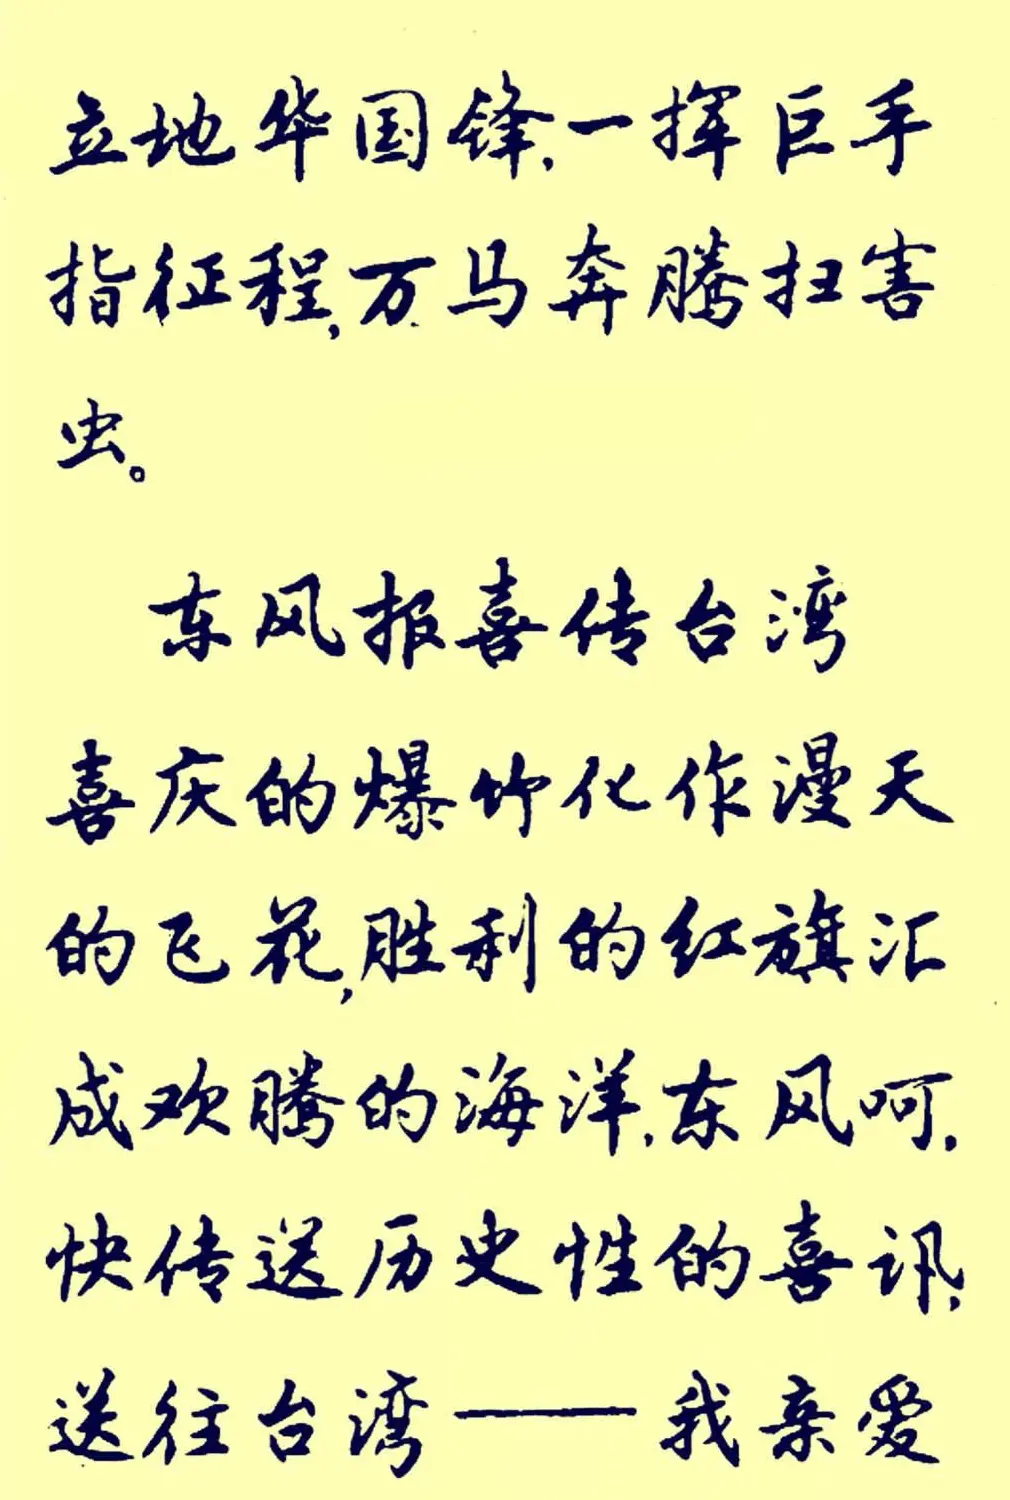 立地华国锋,一挥巨手
指征程,万马奔腾扫害
虫。
东风报喜传台湾
喜庆的爆竹化作漫天
的飞花,胜利的红旗汇
成欢腾的海洋,东风呵,
快传送历史性的喜讯,
送往台湾——我亲爱